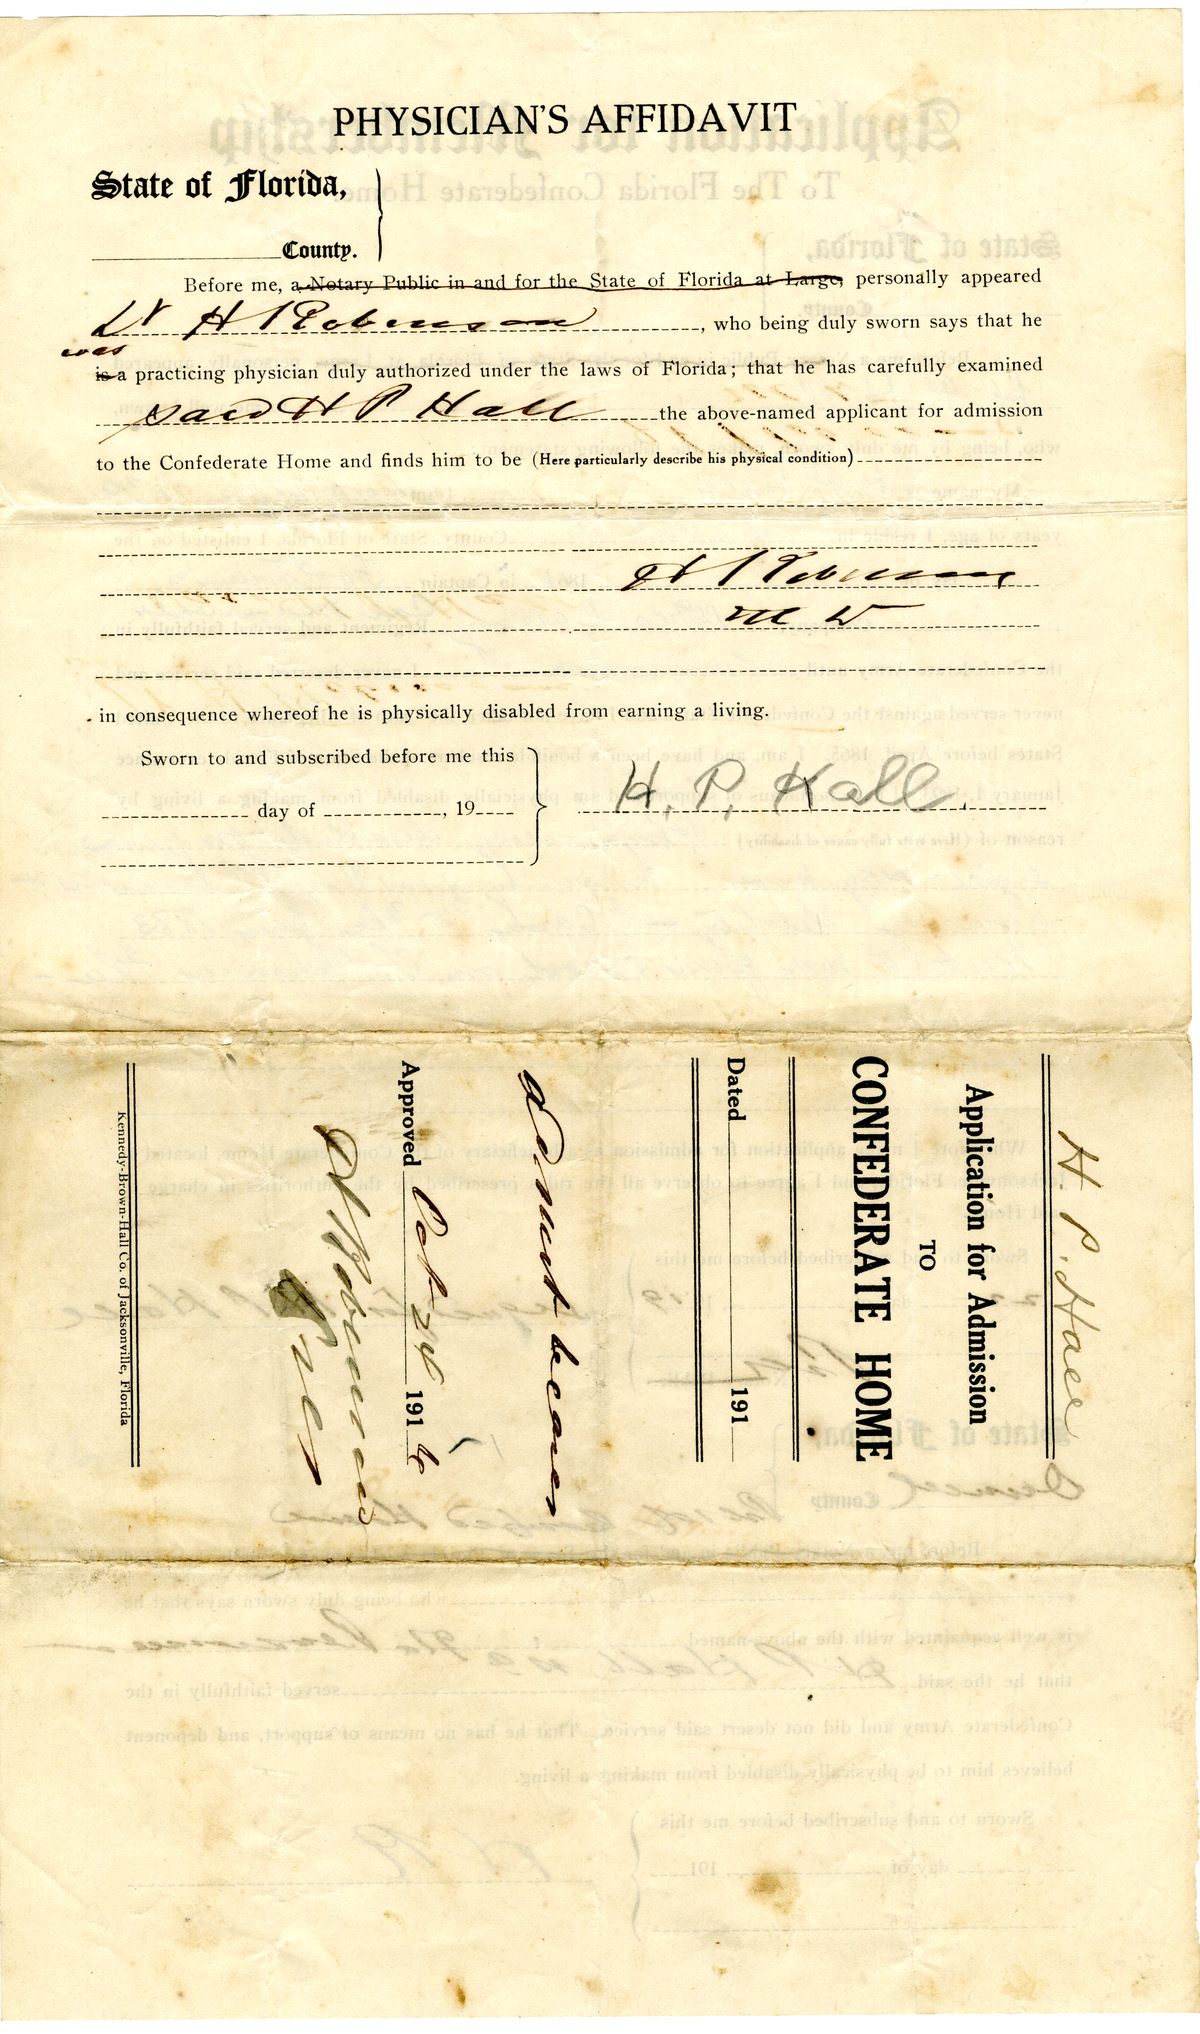 PHYSICIAN'S AFFIDAVIT
State of Florida,
County.
Before me, a Notary Public in and for the State of Florida at Large, personally appeared
Dr H Robinson, who being duly sworn says that he
was
is a practicing physician duly authorized under the laws of Florida; that he has carefully examined
said H P Hall the above-named applicant for admission
to the Confederate Home and finds him to be (Here particularly describe his physical condition)
H Robinson
M D
in consequence whereof he is physically disabled from earning a living.
Sworn to and subscribed before me this
day of , 19
H. P. Hall.
H. P. Hall
Application for Admission
TO
CONFEDERATE HOME
Dated 191
Approved Oct 24 1916
H Robinson
Kennedy-Brown-Hall Co. of Jacksonville, Florida